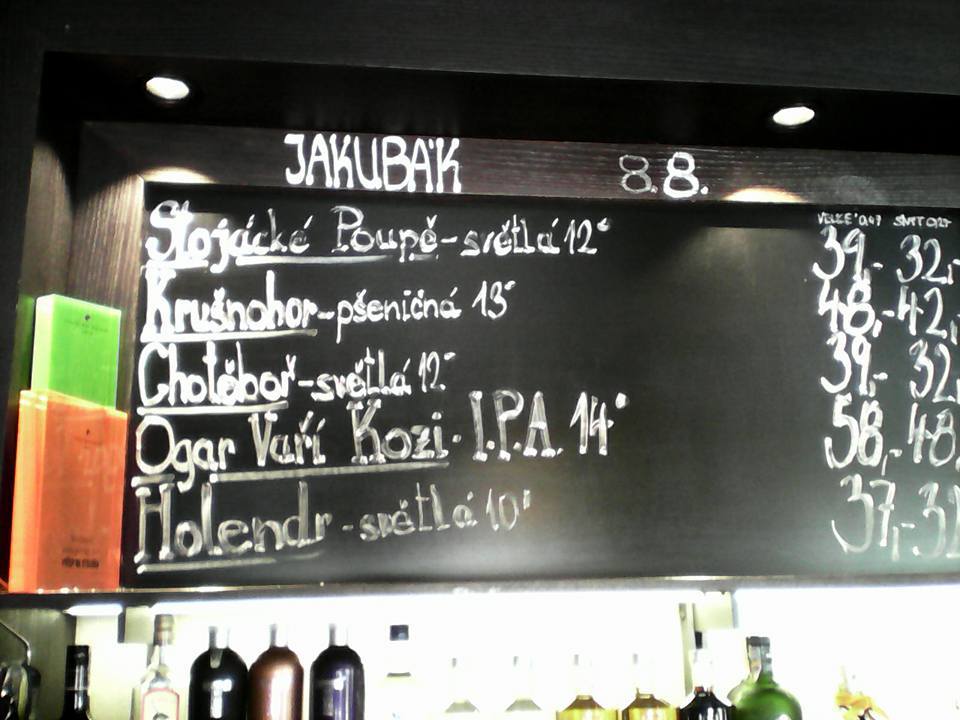 JAKUBÁK 8.8.
VELKÉ 0,4l
Stojácké Poupě - světlá 12° 39,- 32,-
Krušnohor - pšeničná 13° 48,- 42,-
Chotěboř - světlá 12° 39,- 32,
Ogar Vaří Kozi - I.P.A. 14° 58,- 48,
Holendr - světlá 10° 37,-